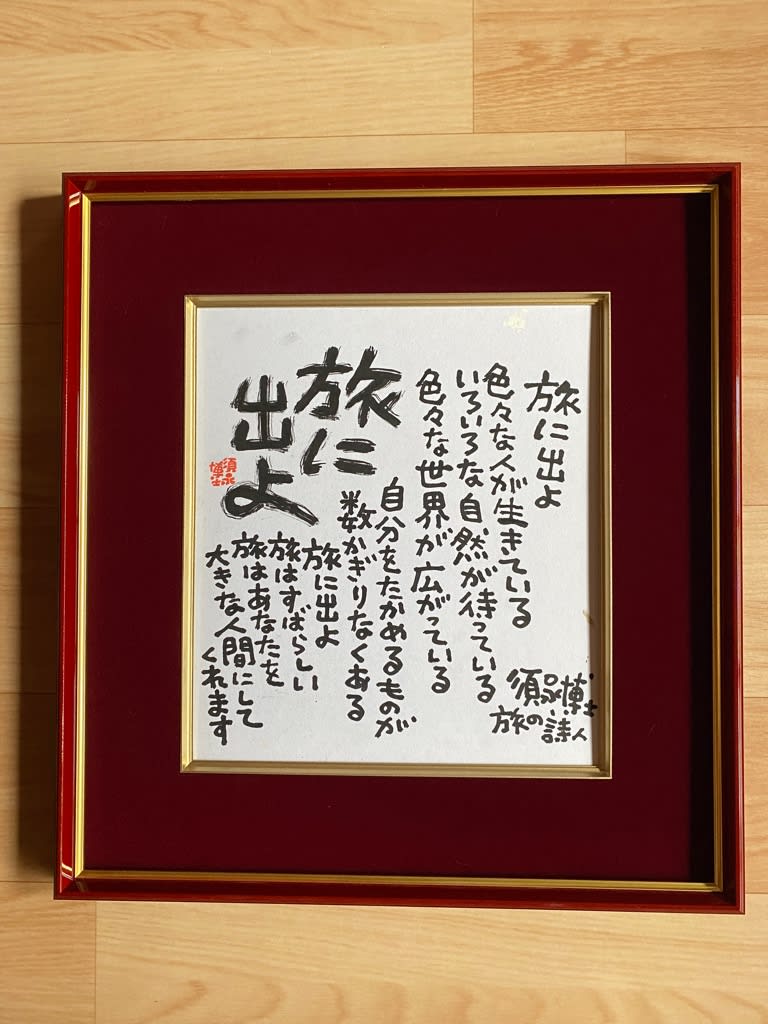 旅に出よ
色々な人が生きている
いろいろな自然が待っている
色々な世界が広がっている
自分をたかめるものが
数かぎりなくある
旅に出よ
旅はすばらしい
旅はあなたを
大きな人間にして
くれます
旅に
出よ
須永博士
旅の詩人
須永博士